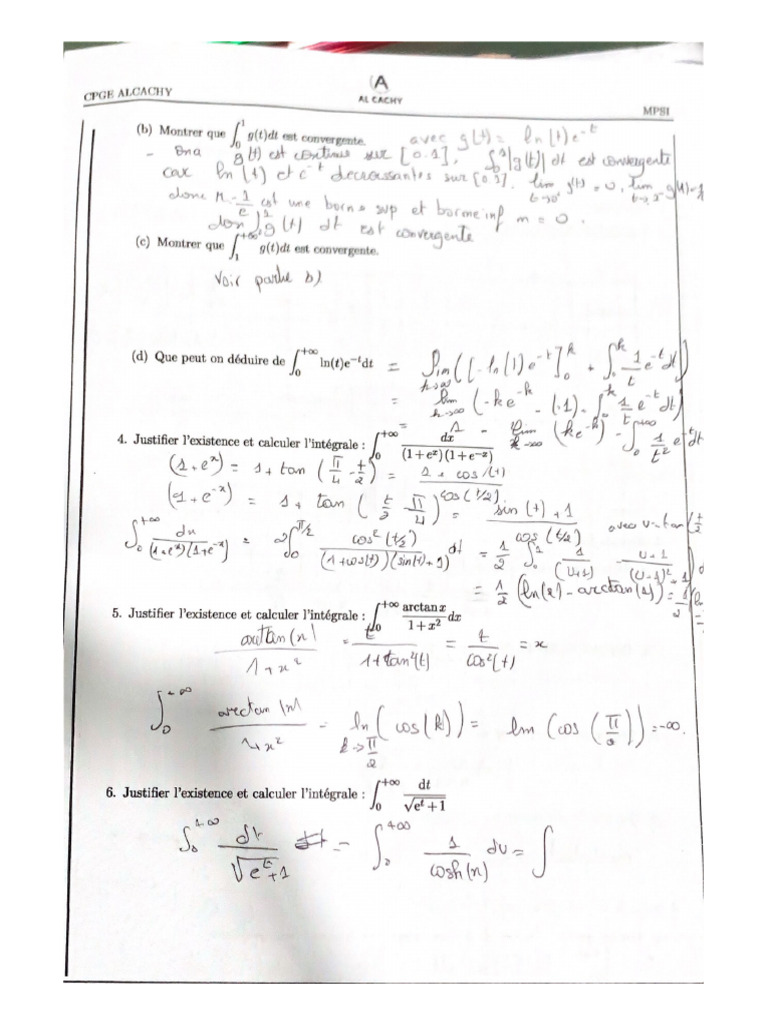 CPGE ALCACHY
A
AL CACHY
MPSI
(b) Montrer que ∫_0^1 g(t)dt est convergente. avec g(t) = ln(t)e^{-t}
- Ona g(t) est continus sur [0.1], ∫_0^1 |g(t)| dt est convergente
car ln(t) et e^{-t} decroissantes sur [0.1].
est une borne sup et borne inf m = 0.
g(t) dt est convergente
(c) Montrer que ∫_1^{+∞} g(t)dt est convergente.
Voir partie b)
(d) Que peut on déduire de ∫_0^{+∞} ln(t)e^{-t}dt = lim_{k→∞} ([-ln(t)e^{-t}]_0^k + ∫_0^k 1/t e^{-t} dt)
= lim_{k→∞} (-ke^{-k} - (-1) - ∫_0^k 1/t e^{-t} dt)
= 1 - lim_{k→∞} (ke^{-k}) - ∫_0^{+∞} 1/t² e^{-t} dt
4. Justifier l'existence et calculer l'intégrale : ∫_0^{+∞} dx/((1+e^x)(1+e^{-x}))
(1+e^x) = 1+tan(π/4 - t/2) = (1+cos(t))/cos(t/2)
(1+e^{-x}) = 1+tan(t/2 - π/4) = (sin(t)+1)/cos(t/2) avec u=tan(t/2
∫_0^{+∞} dx/((1+e^x)(1+e^{-x})) = 2∫_0^{π/2} cos²(t/2)/((1+cos(t))(sin(t)+1)) dt = 1/2 ∫_0^1 1/(u+1) (u+1)/((u-1)²+1)
= 1/2 (ln(2) - arctan(1)) = 1/2
5. Justifier l'existence et calculer l'intégrale : ∫_0^{+∞} arctan x/(1+x²) dx
arctan(x)/(1+x²) = t/(1+tan²(t)) = t/cos²(t) = x
∫_0^{+∞} arctan(x)/(1+x²) = ln_{k→π/2} (cos(k)) = lm (cos(π/2)) = -∞.
6. Justifier l'existence et calculer l'intégrale : ∫_0^{+∞} dt/√(e^t+1)
∫_0^{+∞} dt/√(e^t+1) = ∫_0^{+∞} 1/cosh(x) du = ∫